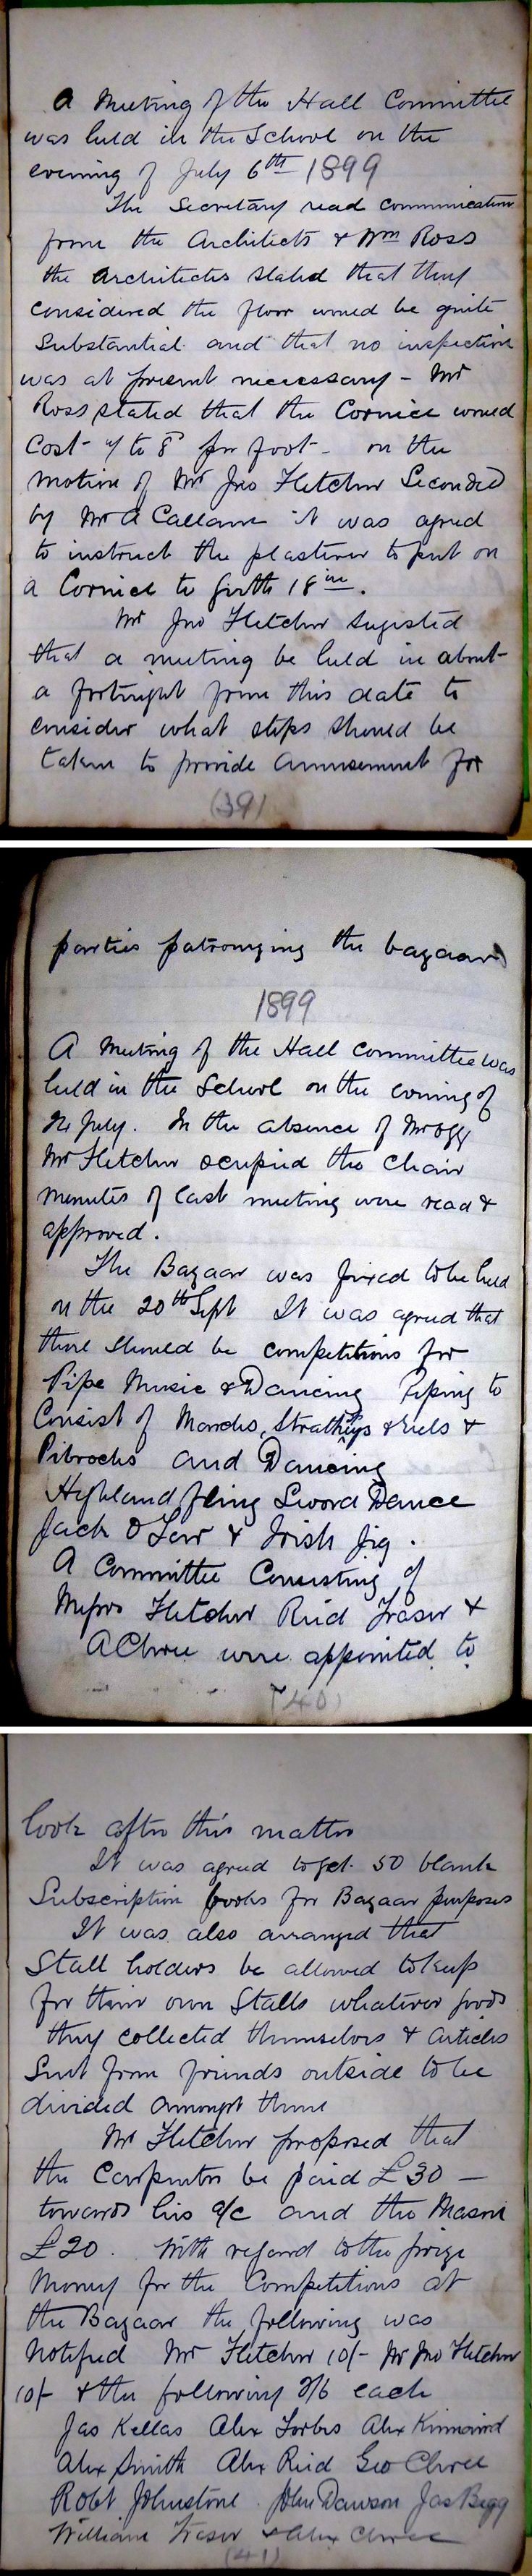 A Meeting of the Hall Committee
was held in the School on the
evening of July 6th 1899
The Secretary read communication
from the Architects & Wm Ross
the Architects stated that they
considered the floor would be quite
Substantial and that no inspection
was at present necessary - Mr
Ross stated that the Cornice would
Cost to 8d per foot - on the
motion of Mr Jno Fletcher Seconded
by Mr A Callam it was agreed
to instruct the plasterer to put on
a Cornice to girth 18 in.
Mr Jno Fletcher sugested
that a meeting be held in about
a fortnight from this date to
consider what steps should be
taken to provide amusement for
(39)
parties patronying the bazaar
1899
A Meeting of the Hall Committee was
held in the School on the evening of
July. In the absence of Mr Ogg
Mr Fletcher occupied the chair
minutes of last meeting were read &
approved.
The Bazaar was fixed to be held
on the 20th Sept It was agreed that
there should be competitions for
Pipe Music & Dancing Piping to
Consist of Marches, Strathspeys & Reels &
Pibrochs and Dancing
Highland fling Sword Dance
Jack O Tar & Irish Jig.
A Committee Consisting of
Messrs Fletcher Reid Fraser &
A Chree were appointed to
(40)
look after this matter
It was agreed to get 50 blank
Subscription books for Bazaar purposes
It was also arranged that
Stall holders be allowed to keep
for their own Stalls whatever goods
they collected themselves & articles
Sent from friends outside to be
divided amongst them
Mr Fletcher proposed that
the Carpenter be paid £30 -
towards his a/c and the Mason
£20. With regard to the prize
Money for the Competitions at
the Bazaar the following was
Notified Mr Fletcher 10/- Mr Jno Fletcher
10/- & the following 2/6 each
Jas Kellas Alex Forbes Alex Kinnaird
Alex Smith Alex Reid Geo Chree
Robt Johnstone John Dawson Jas Begg
William Fraser & Alex Chree
(41)